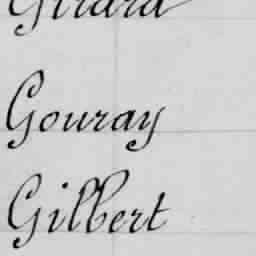 Girard
Gouray
Gilbert